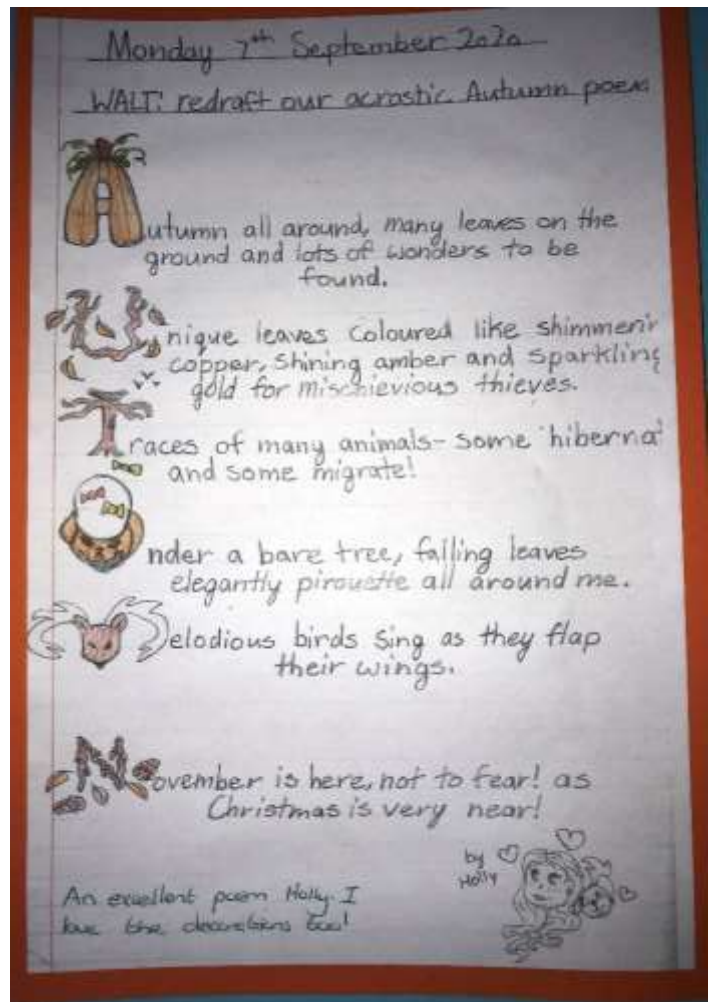 Monday 7th September 2020
WALT: redraft our acrostic Autumn poem
Autumn all around, many leaves on the
ground and lots of wonders to be
found.
Unique leaves coloured like shimmerin
copper, shining amber and sparkling
gold for mischievious thieves.
Traces of many animals - some hiberna
and some migrate!
Under a bare tree, falling leaves
elegantly pirouette all around me.
Melodious birds sing as they flap
their wings.
November is here, not to fear! as
Christmas is very near!
by
Holly
An excellent poem Holly. I
love the decorations too!